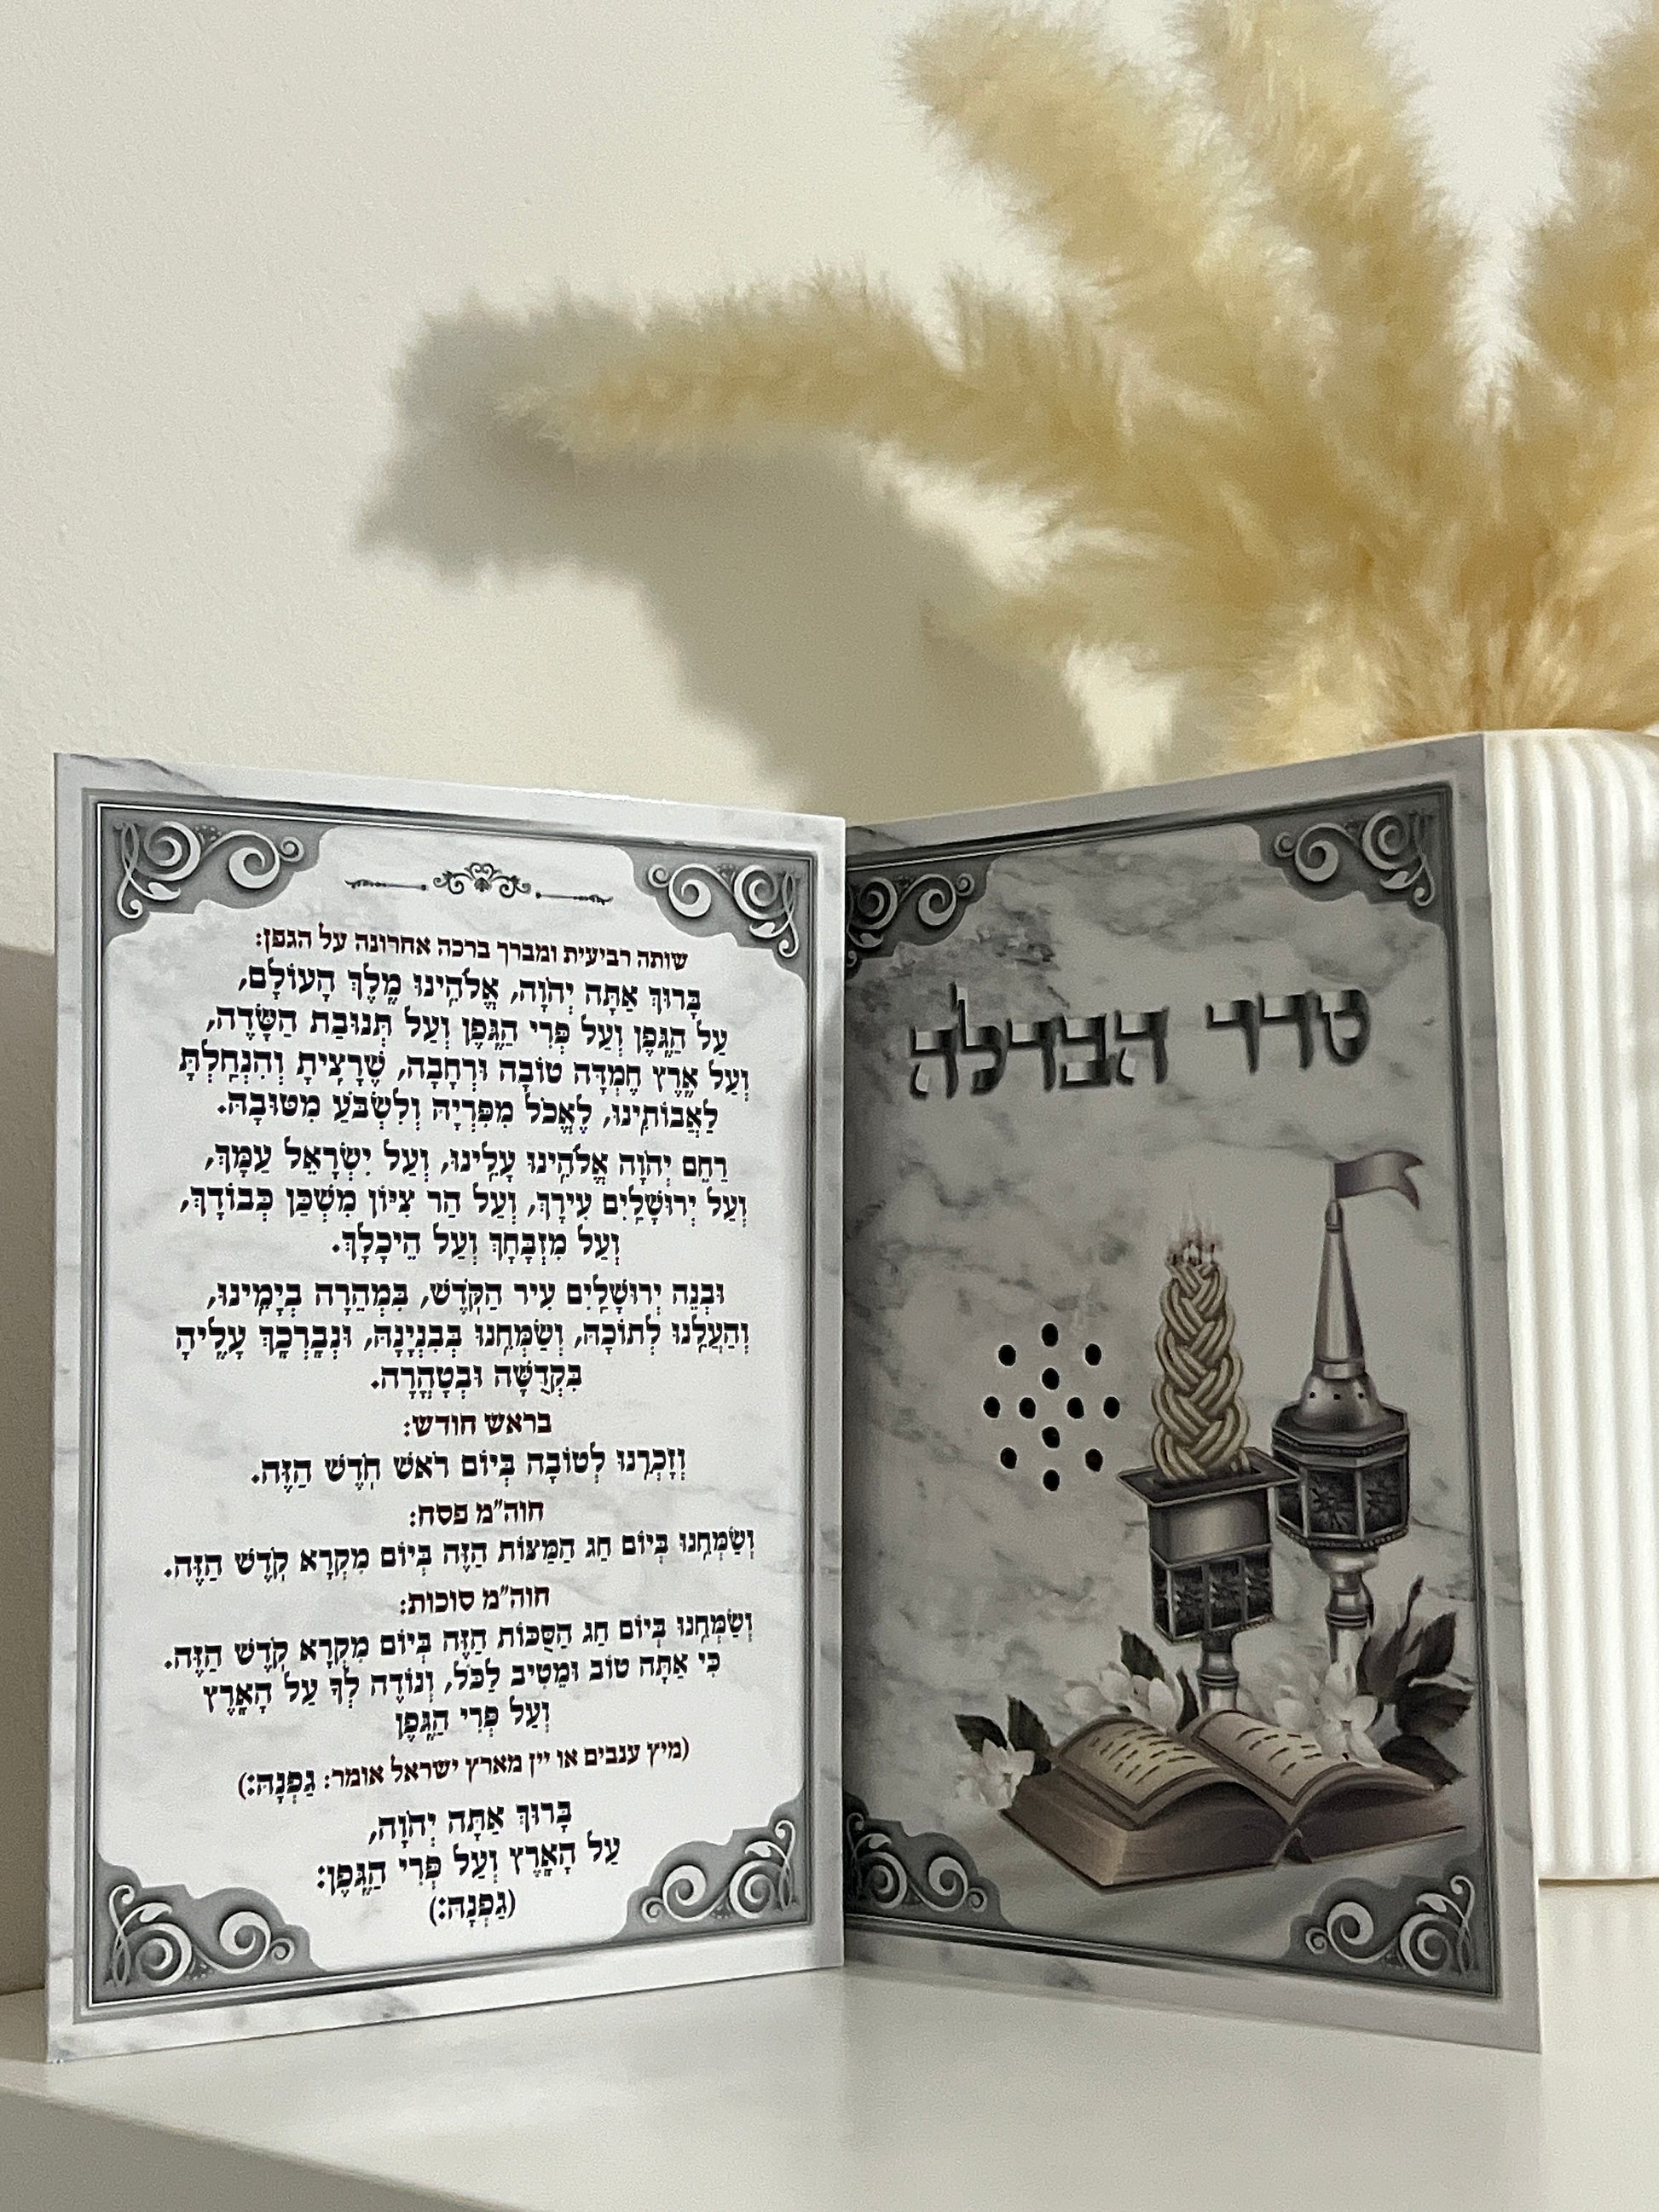 סדר הבדלה
שותה רביעית ומברך ברכה אחרונה על הגפן:
בָּרוּךְ אַתָּה יְהֹוָה, אֱלֹהֵינוּ מֶלֶךְ הָעוֹלָם,
עַל הַגֶּפֶן וְעַל פְּרִי הַגֶּפֶן וְעַל תְּנוּבַת הַשָּׂדֶה,
וְעַל אֶרֶץ חֶמְדָּה טוֹבָה וּרְחָבָה, שֶׁרָצִיתָ וְהִנְחַלְתָּ
לַאֲבוֹתֵינוּ, לֶאֱכֹל מִפִּרְיָהּ וְלִשְׂבֹּעַ מִטּוּבָהּ.
רַחֵם יְהֹוָה אֱלֹהֵינוּ עָלֵינוּ, וְעַל יִשְׂרָאֵל עַמָּךְ,
וְעַל יְרוּשָׁלַיִם עִירָךְ, וְעַל הַר צִיּוֹן מִשְׁכַּן כְּבוֹדָךְ,
וְעַל מִזְבָּחָךְ וְעַל הֵיכָלָךְ.
וּבְנֵה יְרוּשָׁלַיִם עִיר הַקֹּדֶשׁ, בִּמְהֵרָה בְיָמֵינוּ,
וְהַעֲלֵנוּ לְתוֹכָהּ, וְשַׂמְּחֵנוּ בְּבִנְיָנָהּ, וּנְבָרְכָךְ עָלֶיהָ
בִּקְדֻשָּׁה וּבְטָהֳרָה.
בראש חודש:
וְזָכְרֵנוּ לְטוֹבָה בְּיוֹם רֹאשׁ חֹדֶשׁ הַזֶּה.
חוה"מ פסח:
וְשַׂמְּחֵנוּ בְּיוֹם חַג הַמַּצּוֹת הַזֶּה בְּיוֹם מִקְרָא קֹדֶשׁ הַזֶּה.
חוה"מ סוכות:
וְשַׂמְּחֵנוּ בְּיוֹם חַג הַסֻּכּוֹת הַזֶּה בְּיוֹם מִקְרָא קֹדֶשׁ הַזֶּה.
כִּי אַתָּה טוֹב וּמֵטִיב לַכֹּל, וְנוֹדֶה לְךָ עַל הָאָרֶץ
וְעַל פְּרִי הַגֶּפֶן
(מיץ ענבים או יין מארץ ישראל אומר: גַּפְנָהּ:)
בָּרוּךְ אַתָּה יְהֹוָה,
עַל הָאָרֶץ וְעַל פְּרִי הַגֶּפֶן:
(גַּפְנָהּ:)